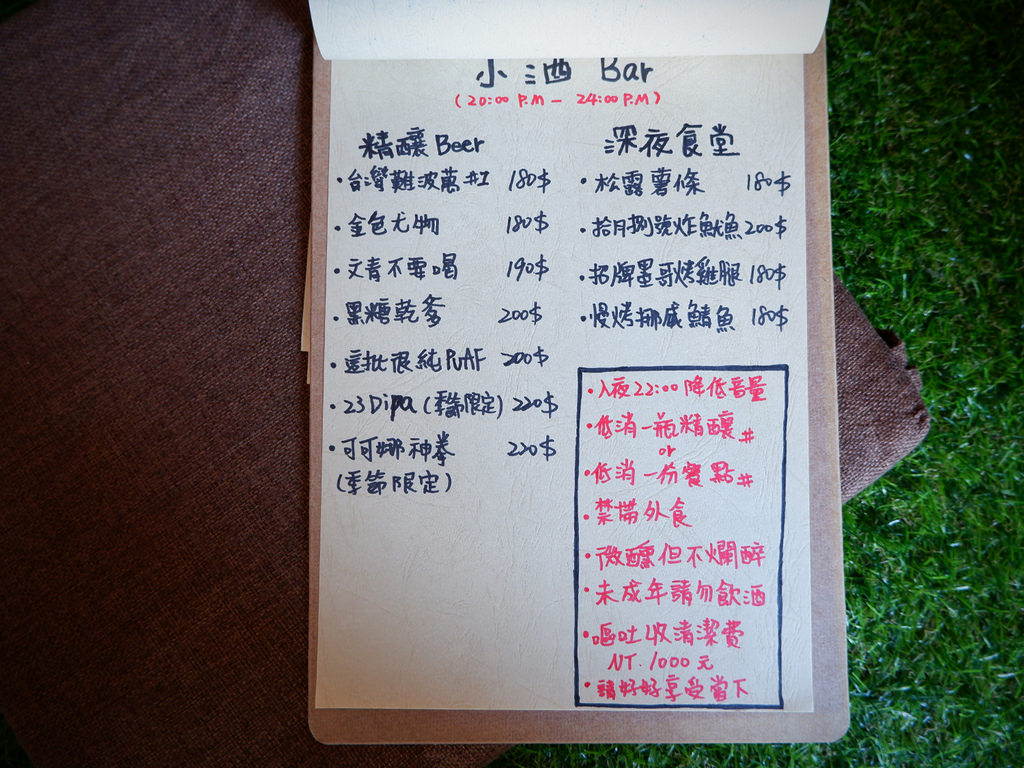 小酒 Bar
(20:00 P.M - 24:00 P.M)
精釀 Beer
・台灣難波萬#1 180$
・金色尤物 180$
・文青不要喝 190$
・黑糖乾爹 200$
・這批很純 PUAF 200$
・23 Dipa (季節限定) 220$
・可可娜神拳 220$
(季節限定)
深夜食堂
・松露薯條 180$
・拾月捌號炸魷魚 200$
・招牌墨哥烤雞腿 180$
・慢烤挪威鯖魚 180$
・入夜22:00降低音量
・低消一瓶精釀#
or
・低消一份餐點#
・禁帶外食
・微醺但不爛醉
・未成年請勿飲酒
・嘔吐收清潔費
NT. 1000元
・請好好享受當下